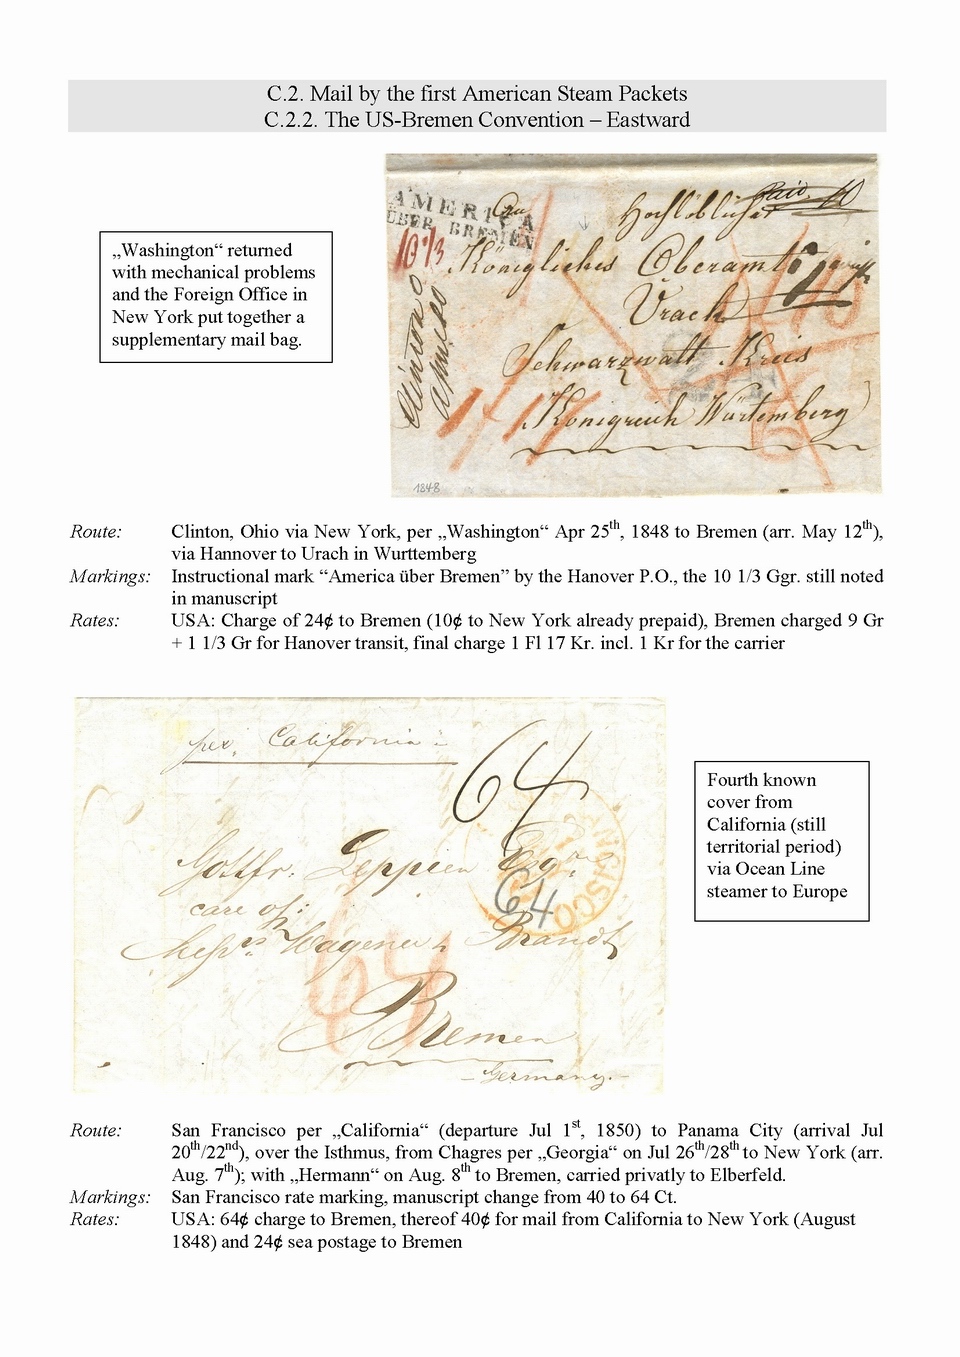 C.2. Mail by the first American Steam Packets
C.2.2. The US-Bremen Convention – Eastward
„Washington“ returned
with mechanical problems
and the Foreign Office in
New York put together a
supplementary mail bag.
AMERICA
ÜBER BREMEN
10 1/3
Paid 10
Hochlöbliches
Königliches Oberamt
Urach
Schwarzwalt Kreis
Königreich Würtemberg
Clinton O
1 17
1848
Route: Clinton, Ohio via New York, per „Washington“ Apr 25th, 1848 to Bremen (arr. May 12th),
via Hannover to Urach in Wurttemberg
Markings: Instructional mark “America über Bremen” by the Hanover P.O., the 10 1/3 Ggr. still noted
in manuscript
Rates: USA: Charge of 24¢ to Bremen (10¢ to New York already prepaid), Bremen charged 9 Gr
+ 1 1/3 Gr for Hanover transit, final charge 1 Fl 17 Kr. incl. 1 Kr for the carrier
per California
64
Gottfr: Leppien Esqre
64
care of:
Messrs Wagener & Brandt
Bremen
– Germany. –
Fourth known
cover from
California (still
territorial period)
via Ocean Line
steamer to Europe
Route: San Francisco per „California“ (departure Jul 1st, 1850) to Panama City (arrival Jul
20th/22nd), over the Isthmus, from Chagres per „Georgia“ on Jul 26th/28th to New York (arr.
Aug. 7th); with „Hermann“ on Aug. 8th to Bremen, carried privatly to Elberfeld.
Markings: San Francisco rate marking, manuscript change from 40 to 64 Ct.
Rates: USA: 64¢ charge to Bremen, thereof 40¢ for mail from California to New York (August
1848) and 24¢ sea postage to Bremen